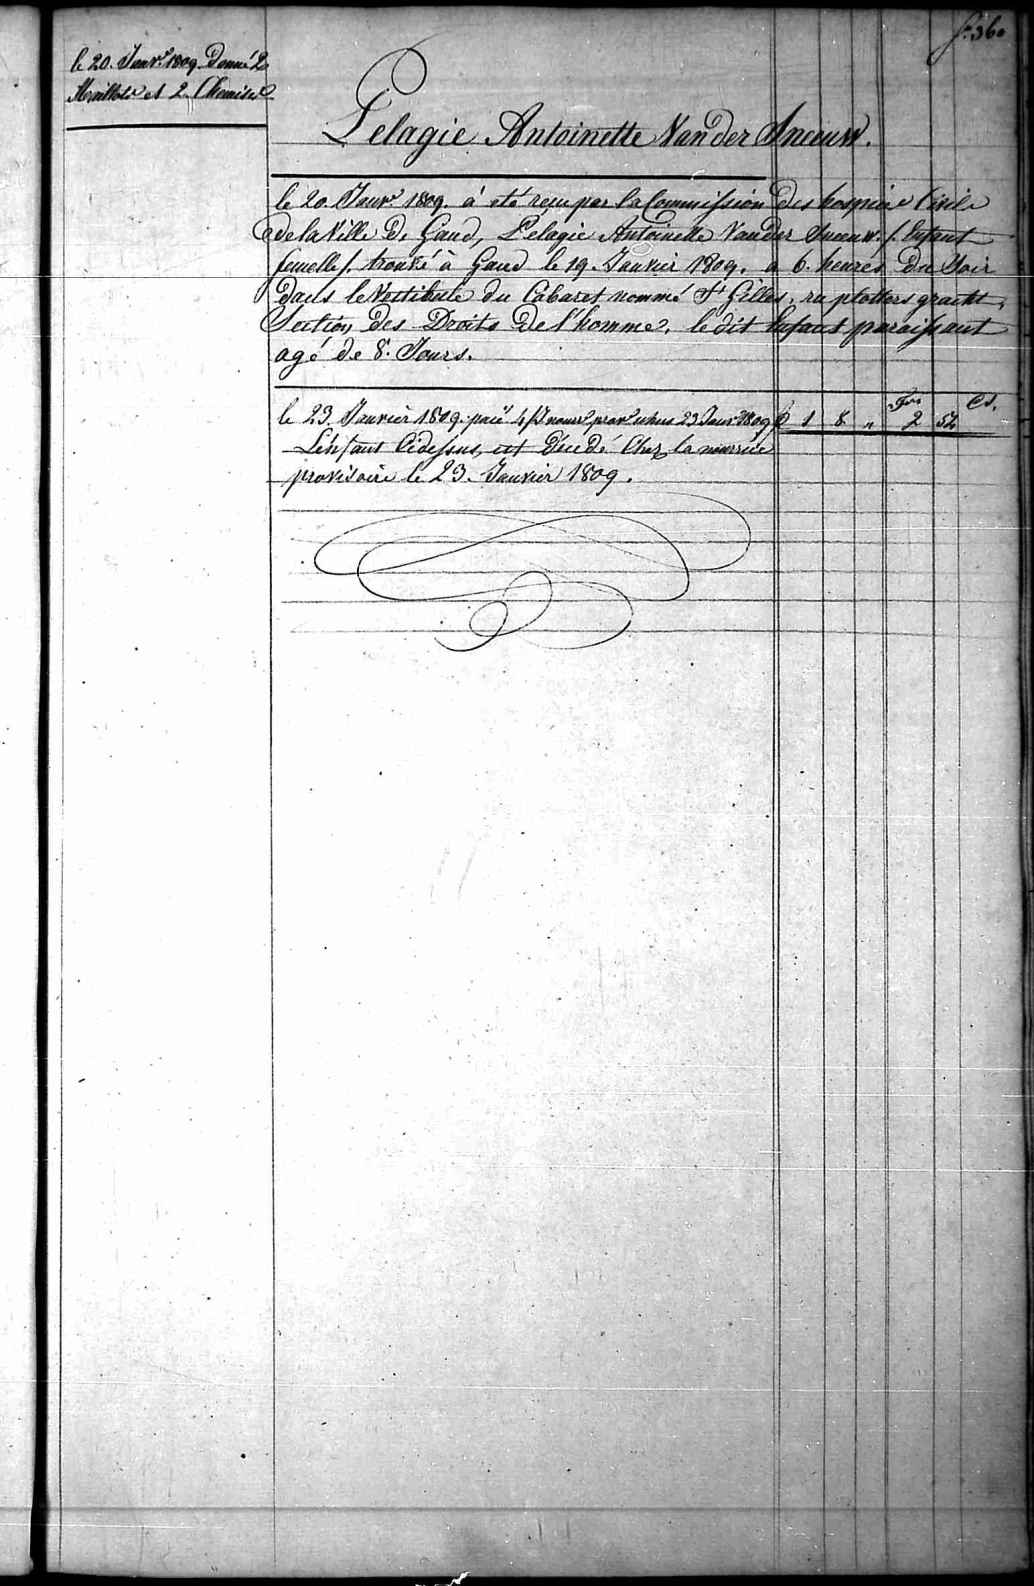 f. 36.
le 20. Janv.r 1809. Donné 2
Maillots et 2. Chemises
Pelagie Antoinette Van der Sneeuw.
le 20. Janv.r 1809. à été reçu par la Commission des hospice Civils
de la Ville de Gand, Pelagie Antoinette Vander Sneeuw. /: Enfant
femelle /: trouvé à Gand le 19. Janvier 1809. a 6. heures Du Soir
Dans le Vestibule du Cabaret nommé St Gilles, ru plotters gracht,
Section, des Droits de l'homme, le dit Enfant paraissant
agé de 8. Jours.
frs Cs.
le 23. Janvier 1809. paié 4 Jours prov.e 23 Janv.r 1809 1 8 " 2 52
L'enfant Cidessus, est Décedé Chez la nourrice
provisoire le 23. Janvier 1809.